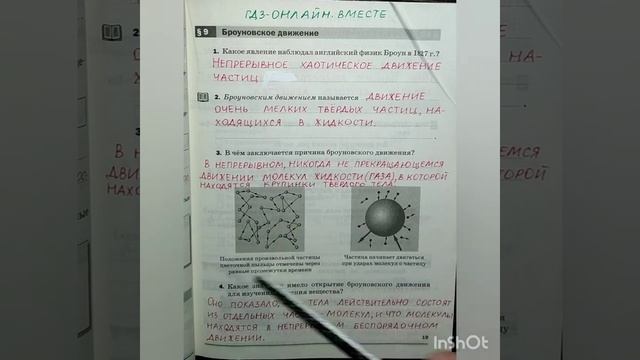 ГДЗ-ОНЛАЙН. ВМЕСТЕ
§ 9 Броуновское движение
1. Какое явление наблюдал английский физик Броун в 1827 г.?
НЕПРЕРЫВНОЕ ХАОТИЧЕСКОЕ ДВИЖЕНИЕ
ЧАСТИЦ
2. Броуновским движением называется ДВИЖЕНИЕ
ОЧЕНЬ МЕЛКИХ ТВЕРДЫХ ЧАСТИЦ, НА-
ХОДЯЩИХСЯ В ЖИДКОСТИ.
3. В чём заключается причина броуновского движения?
В НЕПРЕРЫВНОМ, НИКОГДА НЕ ПРЕКРАЩАЮЩЕМСЯ
ДВИЖЕНИИ МОЛЕКУЛ ЖИДКОСТИ (ГАЗА), В КОТОРОЙ
НАХОДЯТСЯ КРУПИНКИ ТВЕРДОГО ТЕЛА.
Положения произвольной частицы
цветочной пыльцы отмечены через
равные промежутки времени
Частица начинает двигаться
при ударах молекул о частицу
4. Какое имело открытие броуновского движения
для изучения вещества?
ОНО ПОКАЗАЛО, ТЕЛА ДЕЙСТВИТЕЛЬНО СОСТОЯТ
ИЗ ОТДЕЛЬНЫХ МОЛЕКУЛ, И ЧТО МОЛЕКУЛЫ
НАХОДЯТСЯ В БЕСПОРЯДОЧНОМ
ДВИЖЕНИИ.
19
InShOt